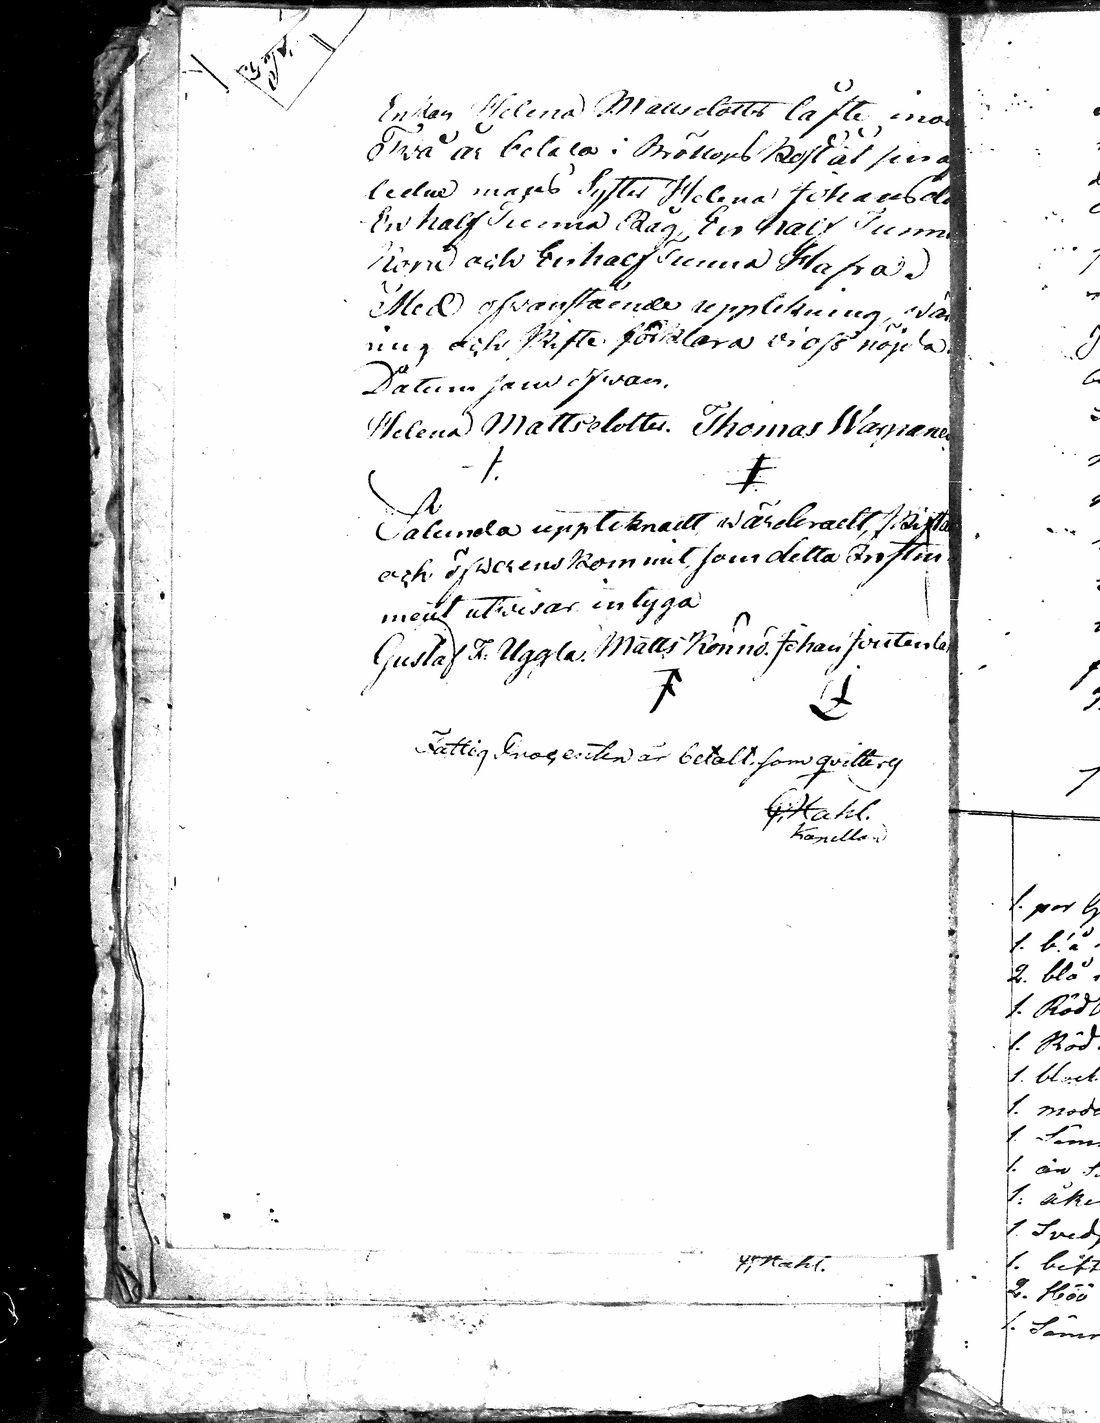 Enkan Helena Mattsdotter låfte inom
Två år betala i Bröllops kost åt sin a
ledne mans Syster Helena Johansdo
En half Tunna Råg, En half Tunna
Korn och En half Tunna Hafra.
Med ofvanstående uppteckning, wär
ing och skifte förklara vi oss nöjda.
Datum som ofvan.
Helena Mattsdotter. Thomas Warpanen
Sålunda upptecknadt, wärderadt, skiftat
och öfverenskommit, som detta Instru
ment utvisar intyga
Gustaf F. Uggla. Matts Könnö. Johan
Fattig Procenten är betalt som qvitterg
Hahl.
Kapellan
Hahl.
1. par
1. blå
2. blå
1. Röd
1. Röd
1.
1.
1.
1. ån
1.
1.
1.
2. Höö
1.